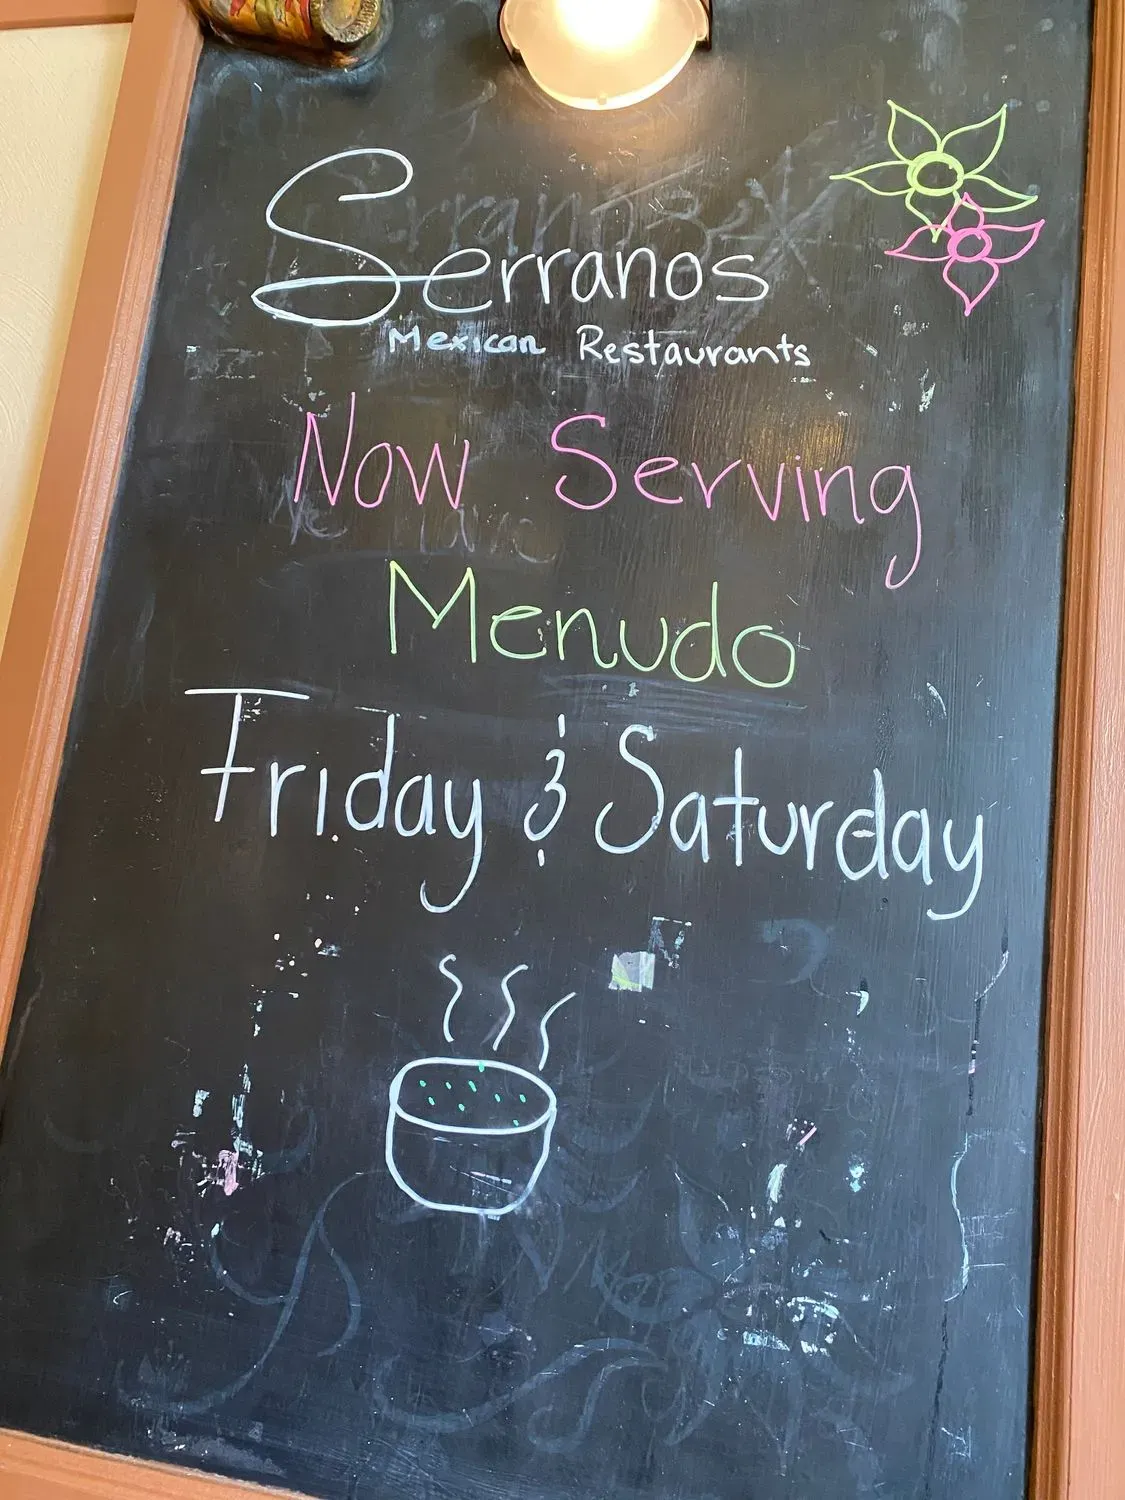 Serranos
Mexican Restaurants
Now Serving
Menudo
Friday & Saturday